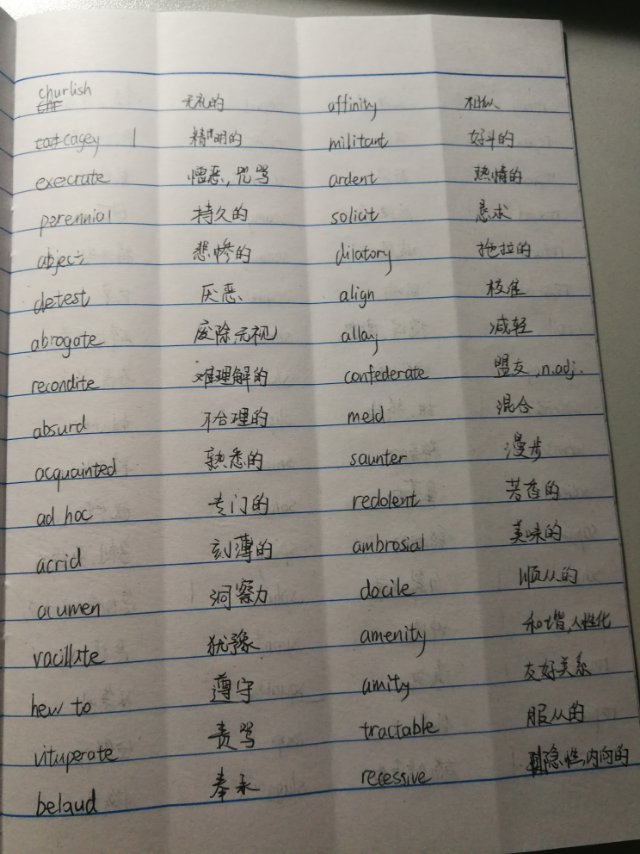 churlish 无礼的 affinity 相似
cagey 精明的 militant 好斗的
execrate 憎恶,咒骂 ardent 热情的
perennial 持久的 solicit 恳求
abject 悲惨的 dilatory 拖拉的
detest 厌恶 align 校准
abrogate 废除无视 allay 减轻
recondite 难理解的 confederate 盟友,n.adj.
absurd 不合理的 meld 混合
acquainted 熟悉的 saunter 漫步
ad hoc 专门的 redolent 芳香的
acrid 刻薄的 ambrosial 美味的
acumen 洞察力 docile 顺从的
vacillate 犹豫 amenity 和谐,人性化
hew to 遵守 amity 友好关系
vituperate 责骂 tractable 服从的
belaud 奉承 recessive 隐性,内向的